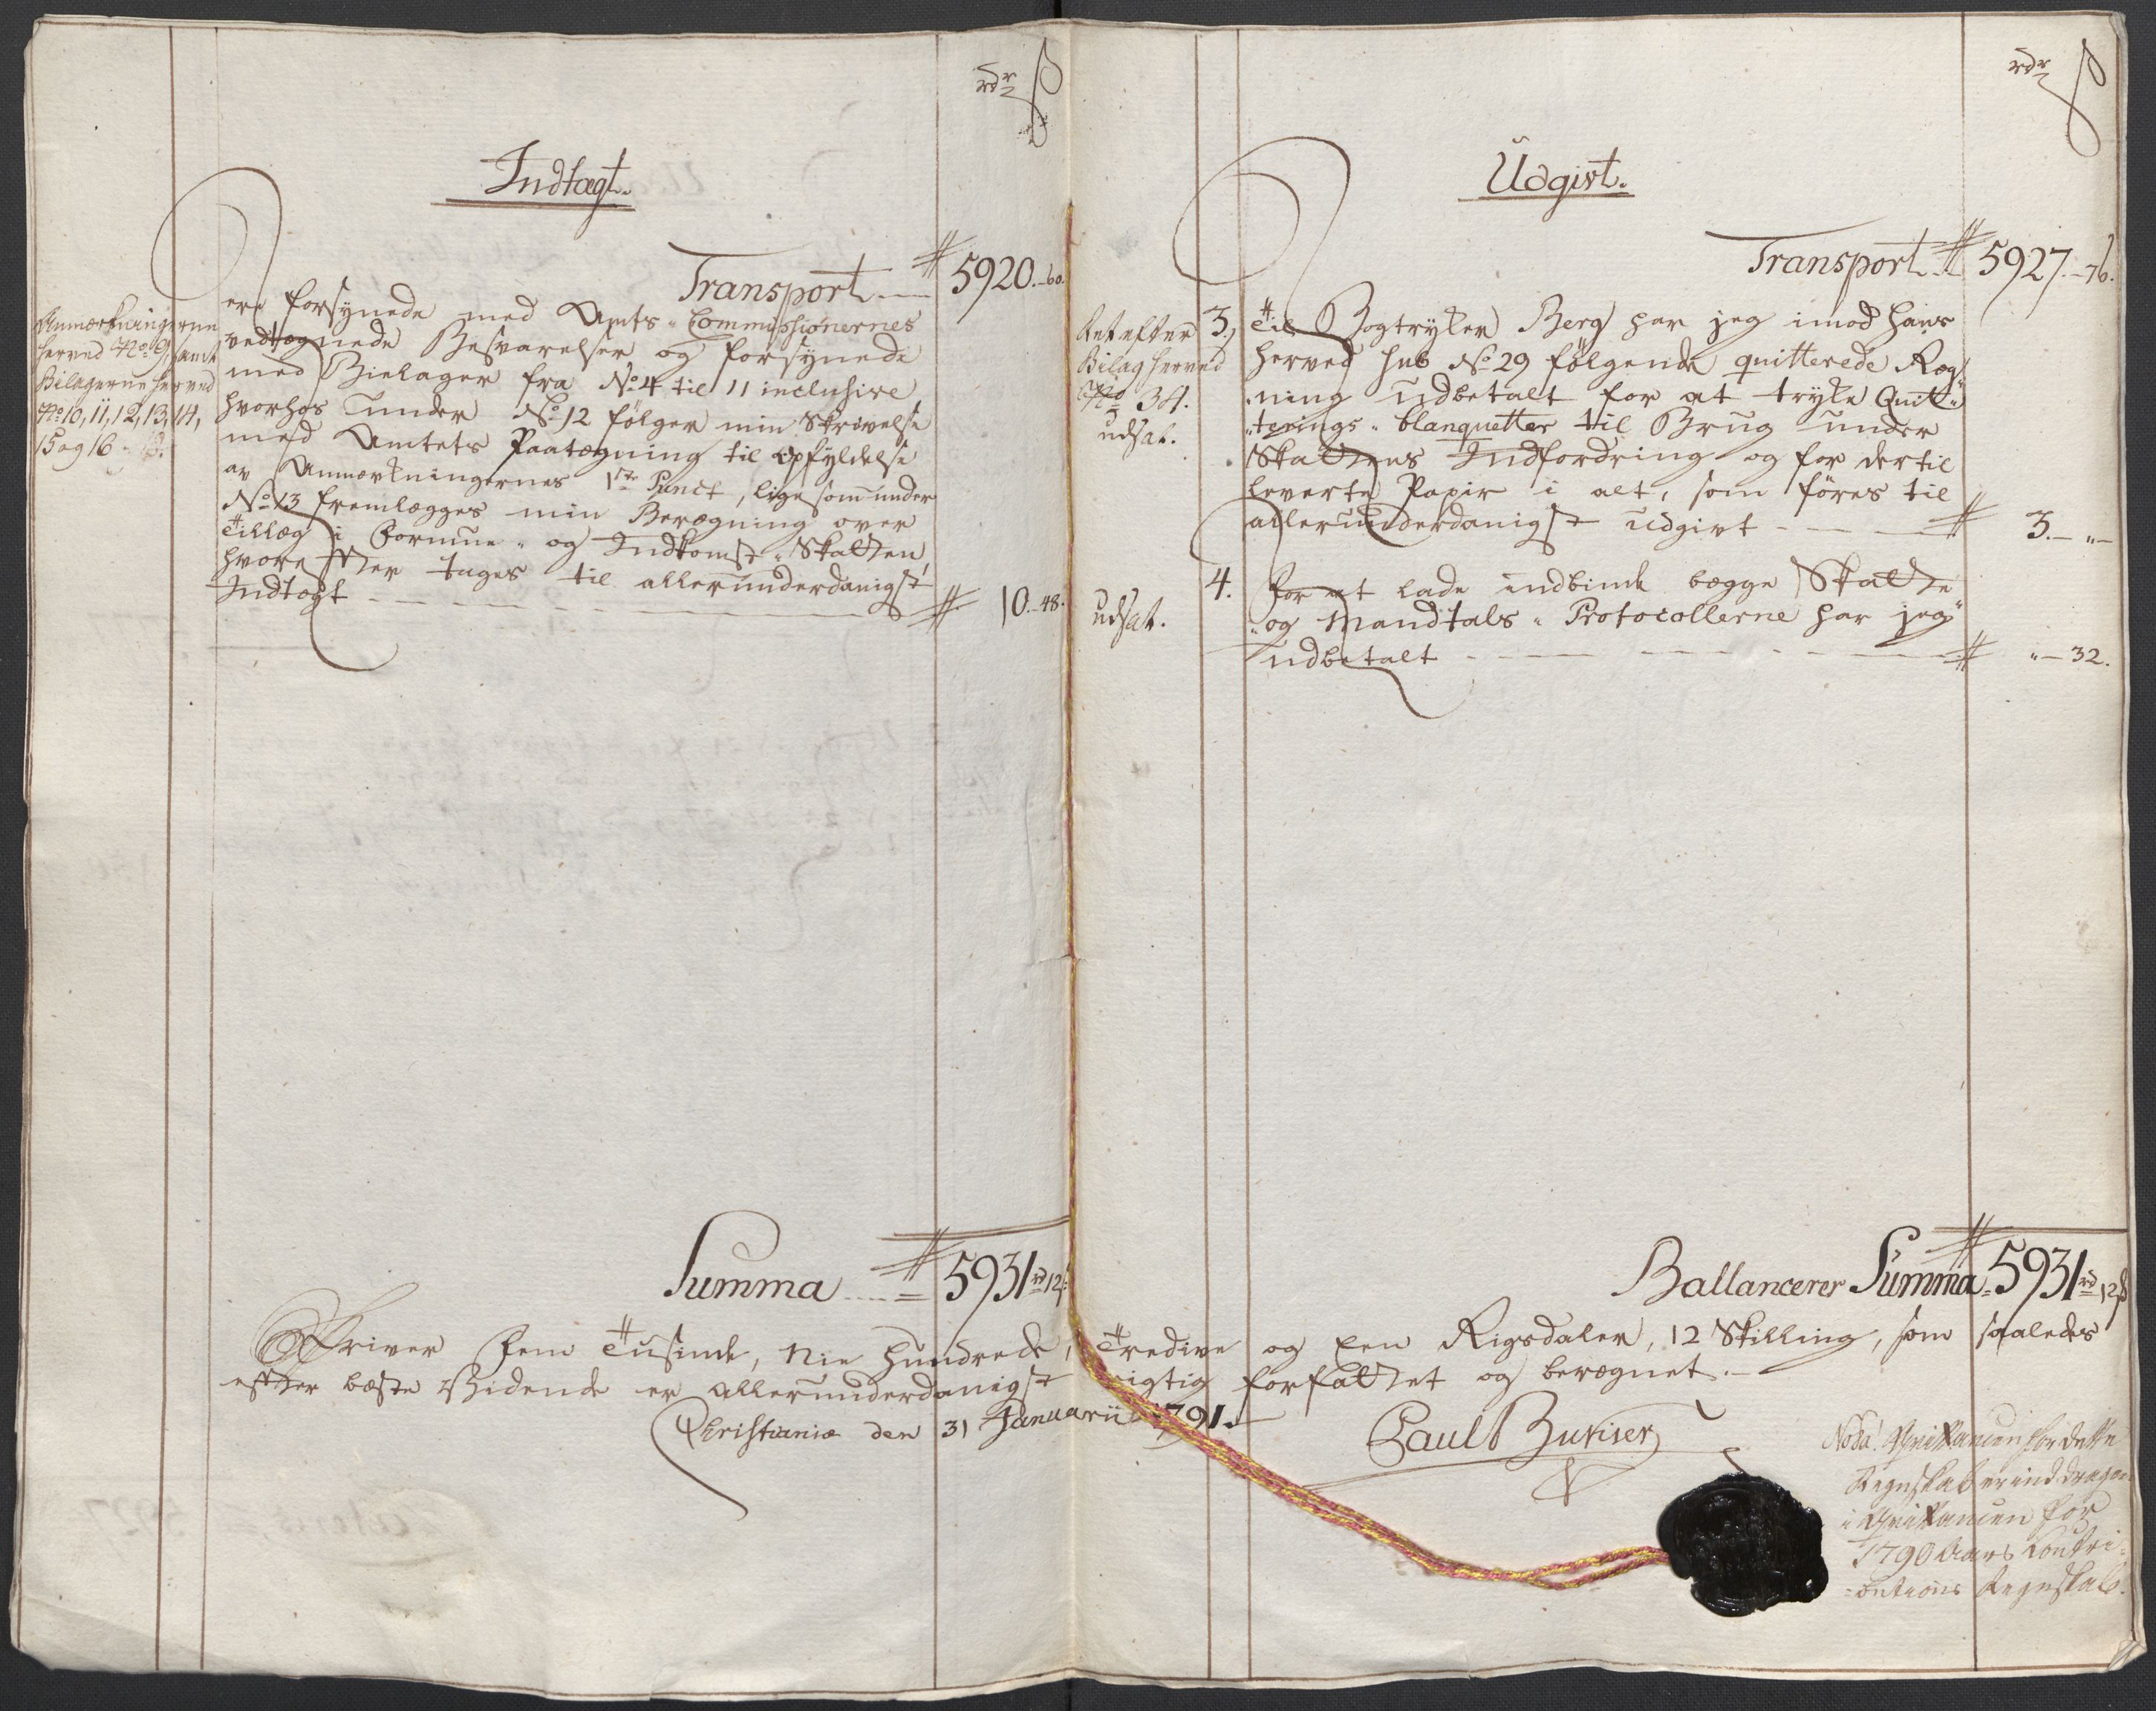 rdr ß
Indtægt.
Transport 5920.-60.
Anmærkningerne
herved No 9, samt
Bilagerne herved
No 10, 11, 12, 13, 14,
15 og 16
ere forsynede med Amts-Commissionernes
vedtegnede Besvarelser og forsynede
med Bielager fra No 4 til 11 inclusive
hvorhos under No 12 følger min Skrivelse
med Amtets Paategning til Opfyldelse
av Anmærkningernes 1ste Punct, ligesom under
No 13 fremlægges min Beregning over
Tillæg i Formue- og Indkomst-Skatten,
hvorefter tages til allerunderdanigst
Indtægt 10.-48.
Summa 5931 rd 12 ß
rdr ß
Udgivt.
Transport 5927.-76.
Ret efter
Bilag herved
No 34.
udsat.
3. Til Bogtryker Berg har jeg imod hans
herved sub No 29 følgende quitterede Reg-
ning udbetalt for at tryke Quit-
terings-blanquetter til Brug under
Skattens Indfordring og for dertil
leverte Papir i alt, som føres til
allerunderdanigst Udgivt 3.-"-
udsat.
4. For at lade indbinde begge Skatte
og Mandtals-Protocollerne har jeg
udbetalt "-32.
Ballancerer Summa 5931 rd 12 ß
Skriver Fem Tusinde, Nie Hundrede, Tredive og Een Rigsdaler, 12 Skilling, som saaledes
efter bæste Vidende er allerunderdanigst rigtig forfattet og beregnet.
Christiania den 31 Januarii 1791.
Paul
Nota! Qvittancen for dette
Regnskab er inddragen
i Qvittancen for
1790 Aars Contri-
butions Regnskab.